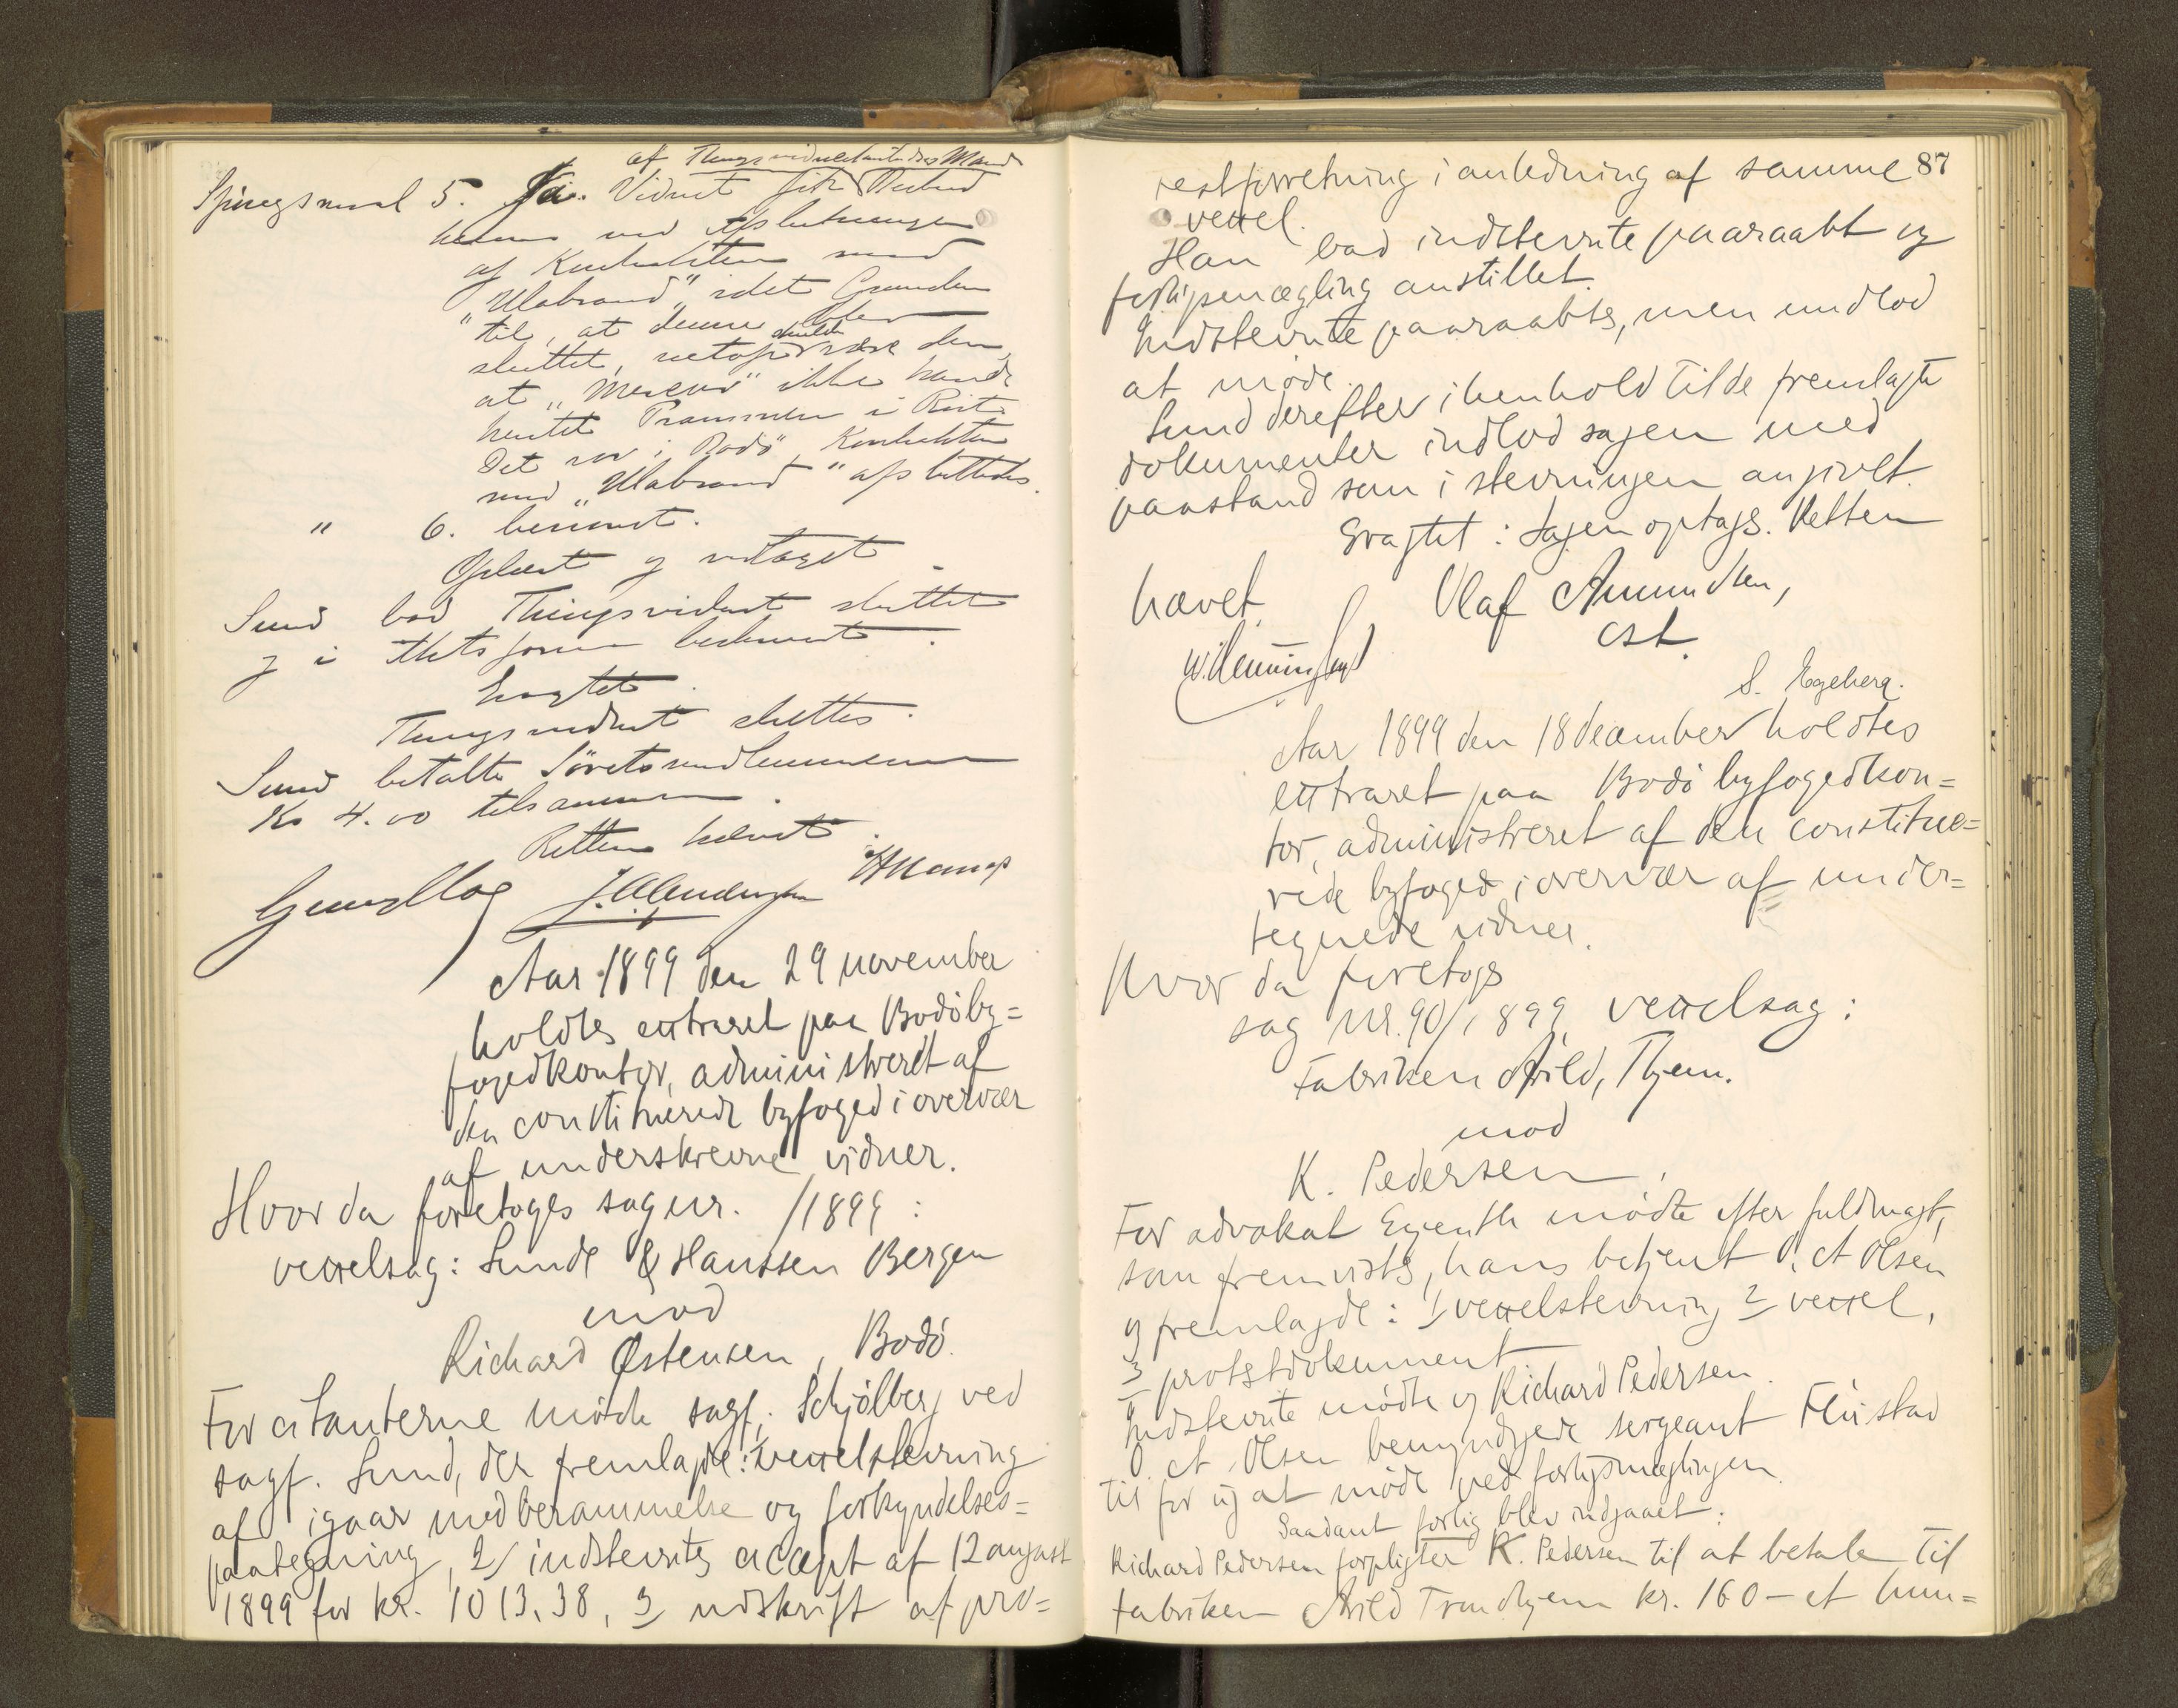 af Thingsvidnecitantindes Mand
Spørgsmaal 5. Ja. Vidnet fik Besked
herom ved Afslutningen
af Kontrakten med
"Ulabrand", idet Grunden
til, at denne blev
sluttet, netop skulde være den
at "Mercur" ikke havde
hentet Prammen i Rist.
Det var i Bodø Kontrakten
med "Ulabrand" afsluttedes.
" 6. benevnt.
Oplæst og vedtaget.
Sund bad Thingsvidnet sluttet
og i Aktsform beskrevet.
Eragtet
Thingsvidnet sluttes.
Sund betalte Søretsmedlemmerne
Kr 4.00 tilsammen.
Retten hævet.
Aar 1899 den 29 november
holdtes extraret paa Bodøby=
fogedkontor, administreret af
den constituerede byfoged i overvær
af underskrevne vidner.
Hvor da foretoges sag nr. /1899:
vexelsag: Sunde & Hanssen Bergen
mod
Richard Østensen, Bodø.
For citanterne mødte sagf. Schjølberg ved
sagf. Sund, der fremlagde: 1/ vexelstevning
af igaar med berammelse og forkyndelses=
paategning, 2/ indstevntes accept af 12 august
1899 for kr. 1013,38, 3/ udskrift af pro=
87
testforretning i anledning af samme
vexel.
Han bad indstevnte paaraabt og
forligsmægling anstillet.
Indstevnte paaraabtes, men undlod
at møde.
Sund derefter i henhold til de fremlagte
dokumenter indlod sagen med
paastand som i stevningen angivet.
Eragtet: Sagen optages. Retten
hævet.
Olaf Amundsen,
cst.
S. Egeberg.
Aar 1899 den 18 december holdtes
extraret paa Bodø byfogedkon=
tor, administreret af den constitue=
rede byfoged i overvær af under=
tegnede vidner.
Hvor da foretoges
sag nr. 90/1899 vexelsag:
Fabriken Arild, Thjem.
mod
K. Pedersen.
For advokat mødte efter fuldmagt,
som fremvistes, hans betjent O. A Olsen
og fremlagde: 1/ vexelstevning 2/ vexel,
3/ protestdokument
Indstevnte mødte og Richard Pedersen.
O. A. Olsen bemyndigede sergeant Flisstad
til for sig at møde ved forligsmæglingen.
Saadant forlig blev indgaaet:
Richard Pedersen forpligter K. Pedersen til at betale til
fabriken Arild Trondhjem kr. 160 – et hun=